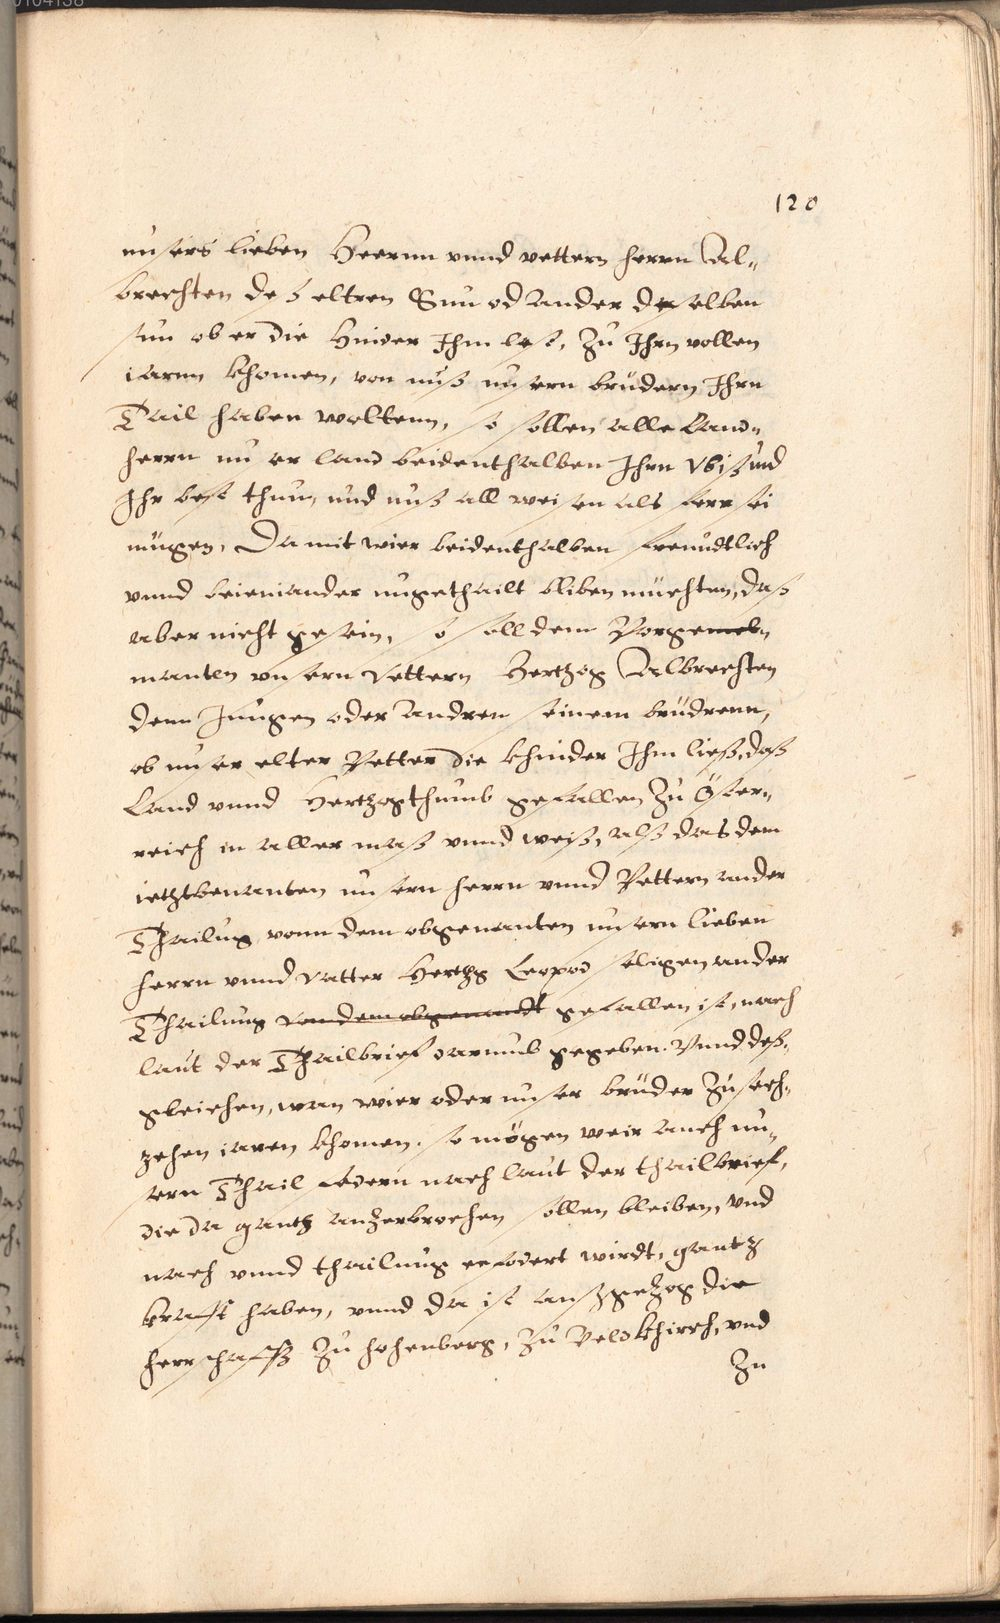 120
unsers lieben Heernn vnnd vettern herrn Al„
brechten deß eltren Sun od ander derselben
sun ob er die hinder Ihm lest, Zu Ihrn vollen
iarnn khomen, von unß unsern brüdern Ihrn
Tail haben woltenn, so sollen alle Land„
herrn unser land beidenthalben Ihrn vbissund
Ihr best thun, und unß all weisen als ferr sei
mügen, Damit wier beidenthalben freundtlich
vnnd beieniander ungethailt bliben müchten, daß
aber nicht gesein, so soll dem Vorgemeln
manten vnsern Vettern Hertzog Albrechten
dem Jungen oder andren seinem brüdrenn,
ob unser elter Vetter die khinder Ihm ließ, daß
Land vnnd Hertzogthumb gefallen Zu Öster„
reich in aller maß vnnd weiß, alß das dem
ietztbenanten unsern herrn vnnd Vettern ander
Thailug vonn dem obgenanten unsern lieben
herrn vnnd Vatter Hertzg Leopod seligen ander
Thailung von dem obgenandt gefallen ist, nach
laut der Thailbrief darumb gegeben. Vnnd deß„
gleichen, wan wier oder unser brüder Zu sech„
zehen iaren khomen. so mögen weir auch un„
sern Thail fodern nach laut der thailbrief,
die da gantz anzerbrochen sollen bleiben, vnd
nach vnnd thailung erfodert wirdt, gantz
krafft haben, vnnd da ist außgezog die
herrschafft Zu hohenberg, Zu Veldkhirch, vnd
Zu